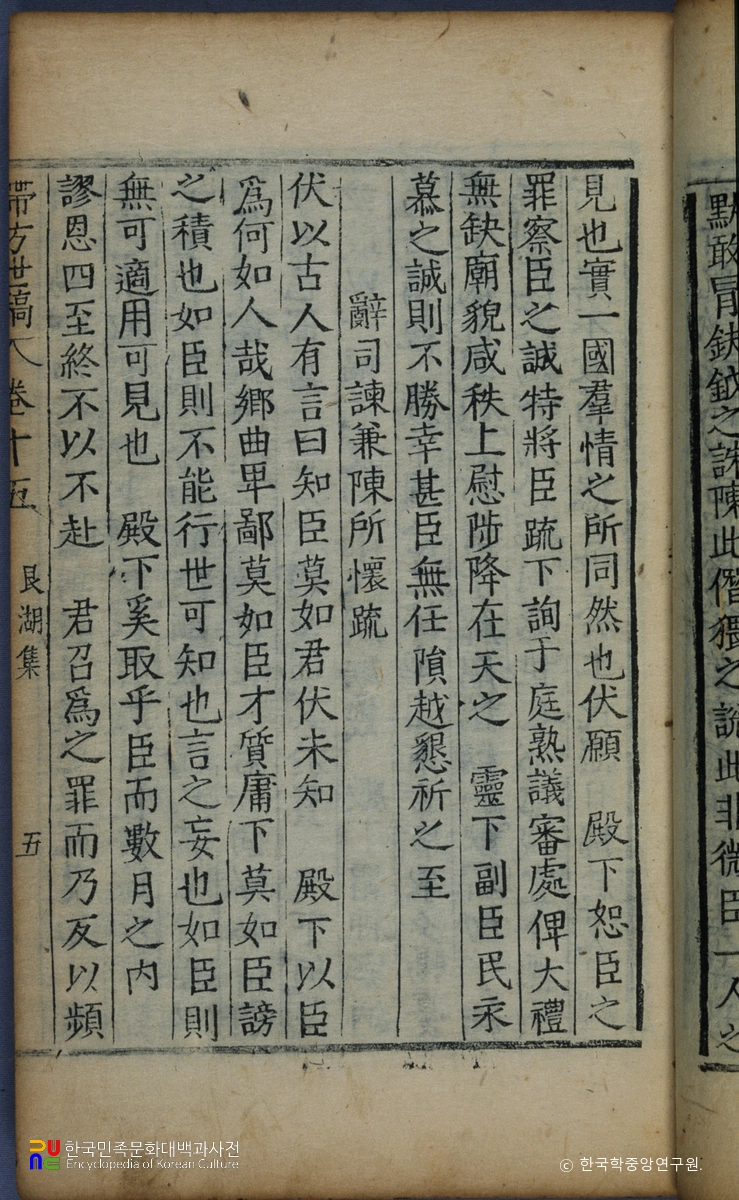 默敢冒鈇鉞之誅陳此僭猥之說此非微臣一人之
見也實一國羣情之所同然也伏願 殿下恕臣之
罪察臣之誠特將臣疏下詢于庭熟議審處俾大禮
無缺廟貌咸秩上慰陟降在天之 靈下副臣民永
慕之誠則不勝幸甚臣無任隕越懇祈之至
辭司諫兼陳所懷疏
伏以古人有言曰知臣莫如君伏未知 殿下以臣
爲何如人哉鄉曲卑鄙莫如臣才質庸下莫如臣謗
之積也如臣則不能行世可知也言之妄也如臣則
無可適用可見也 殿下奚取乎臣而數月之內
謬恩四至終不以不赴 君召爲之罪而乃反以頻
帶方世稿 卷十五 艮湖集 五
한국민족문화대백과사전
Encyclopedia of Korean Culture
© 한국학중앙연구원.